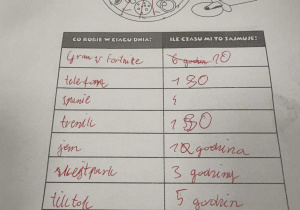 CO ROBIĘ W CIĄGU DNIA? ILE CZASU MI TO ZAJMUJE?
Gram w Fortnite 6 godzin 10
telefon 1 30
spanie
trenik 1 30
jem 1 godzina
skejtpark 3 godziny
tik tok 5 godzin